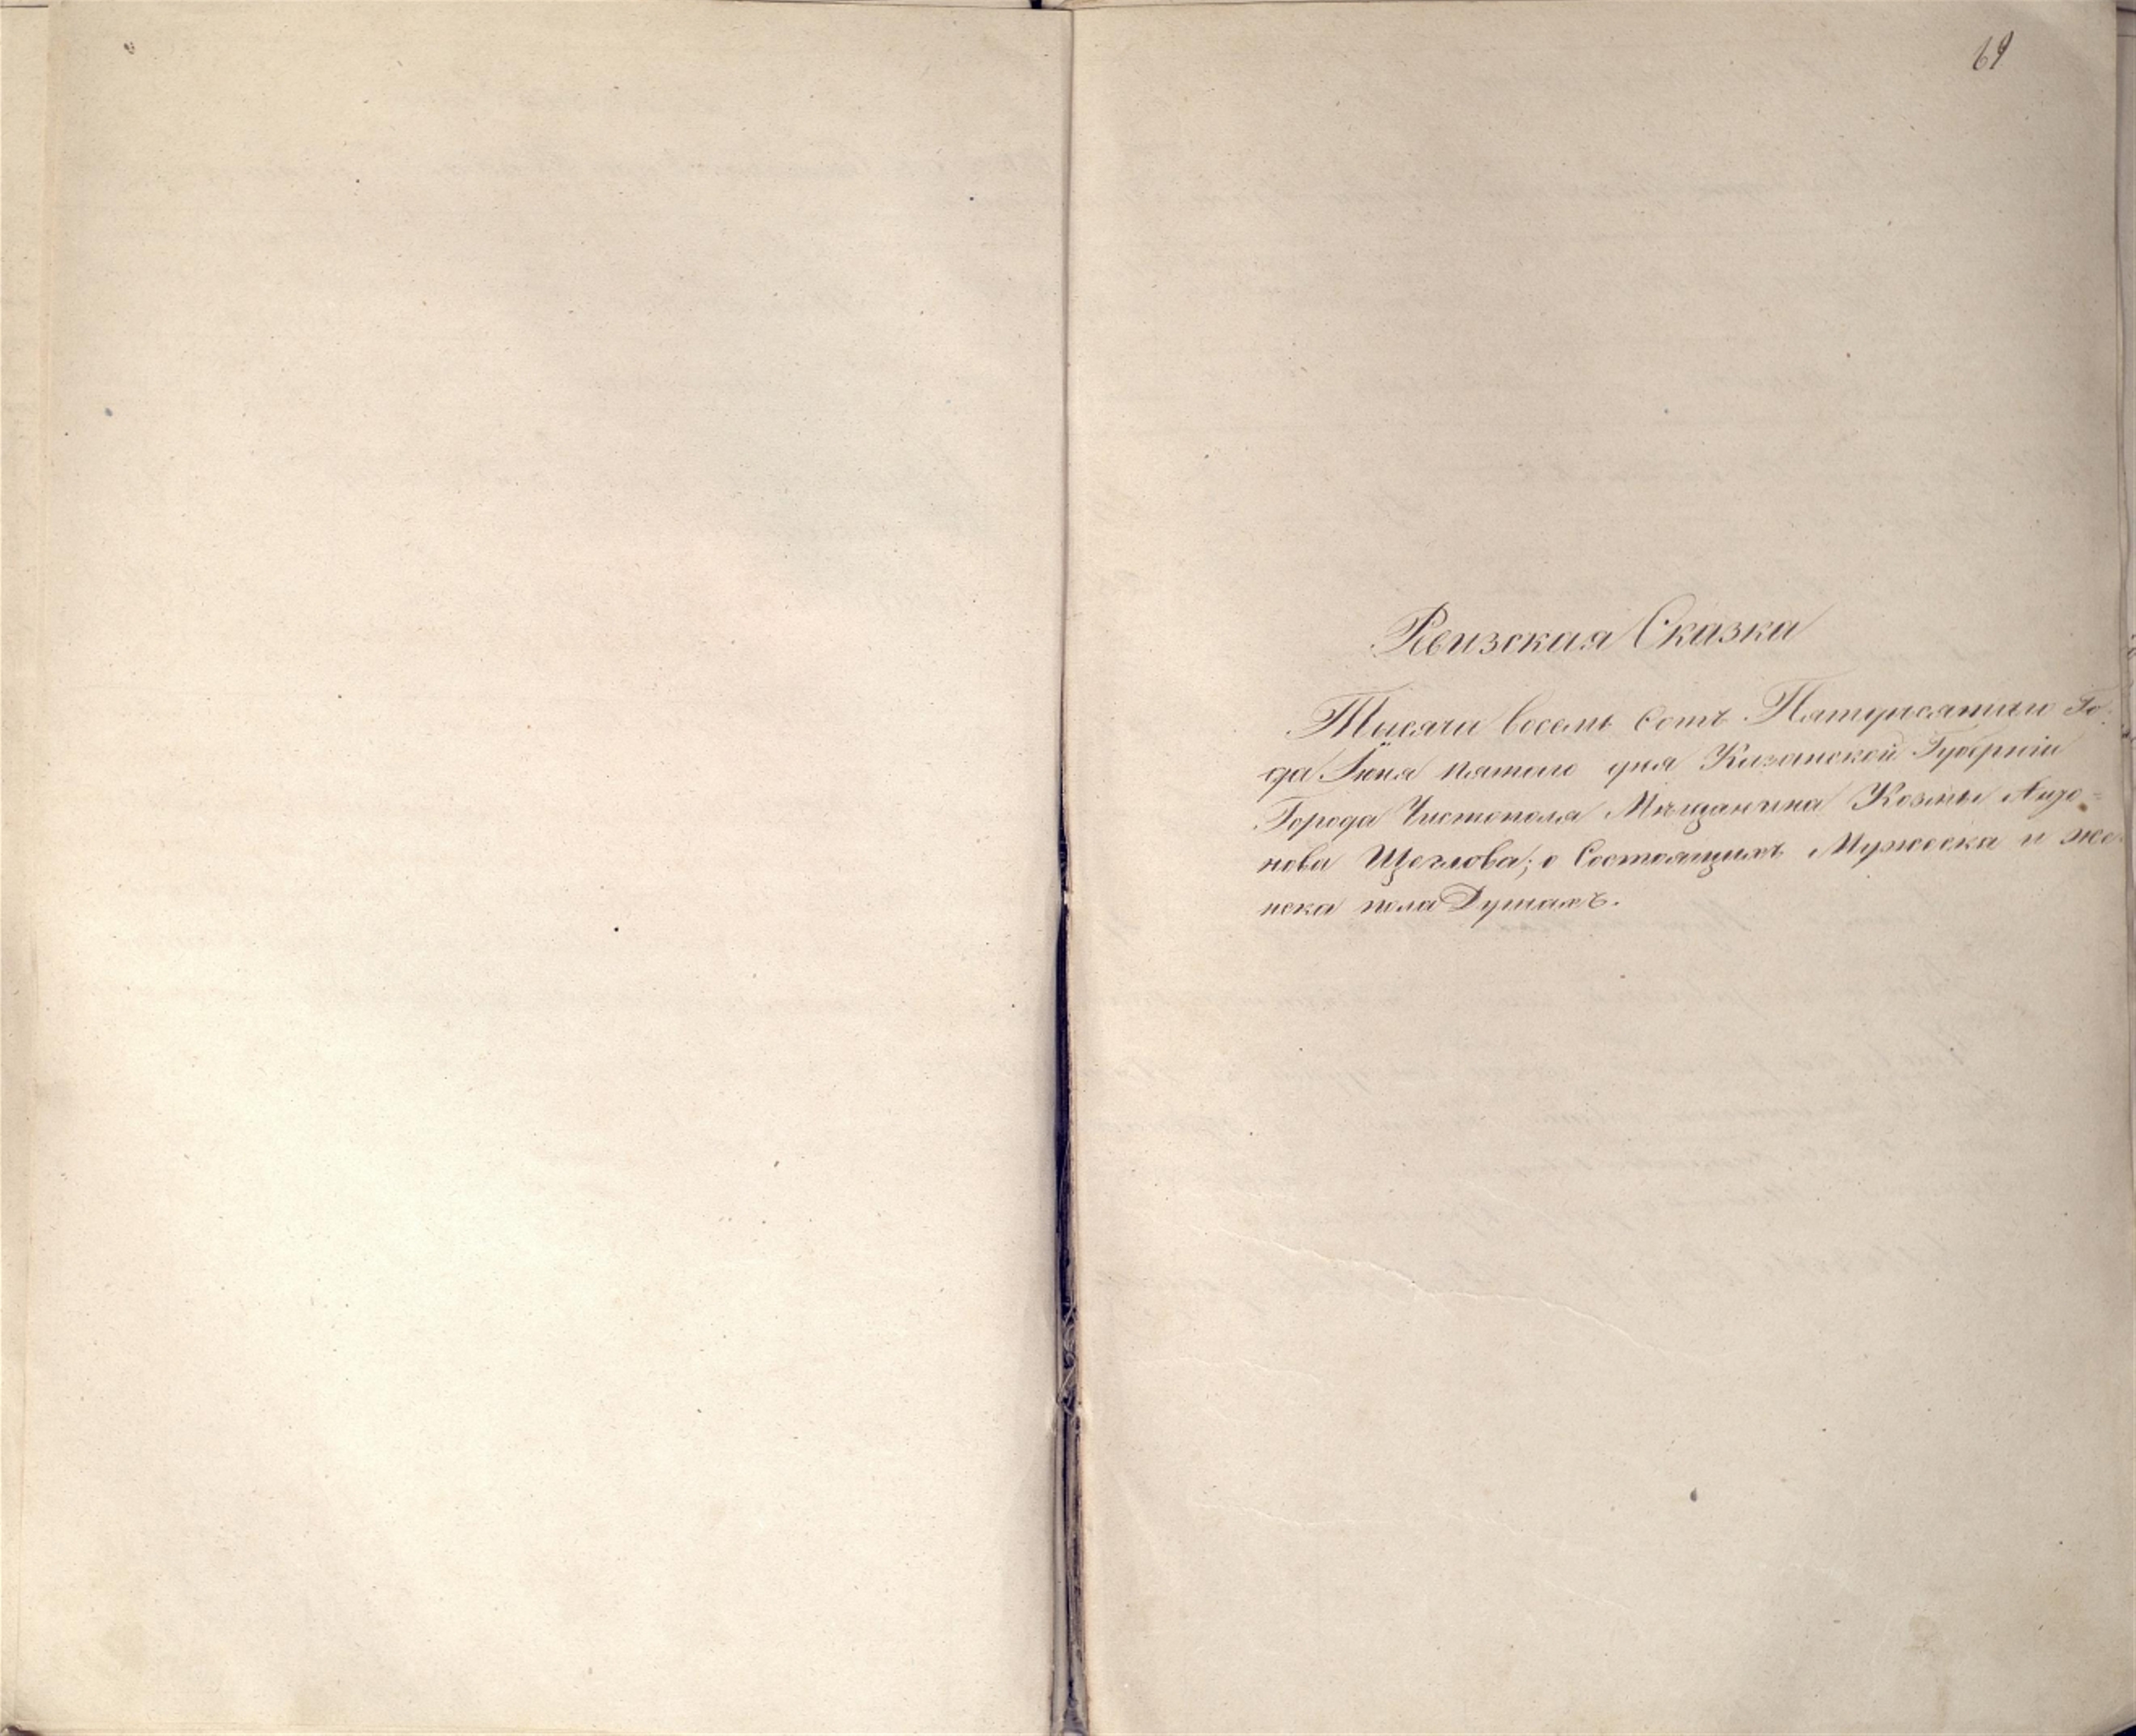 69
Ревизская Сказка
Тысяча восемь сотъ Пятдесятаго Го-
да Іюня пятаго дня Казанской Губерніи
Города Чистополя Мѣщанина Козмы
нова Щеглова; о Состоящихъ Мужеска и же-
нска пола Душахъ.